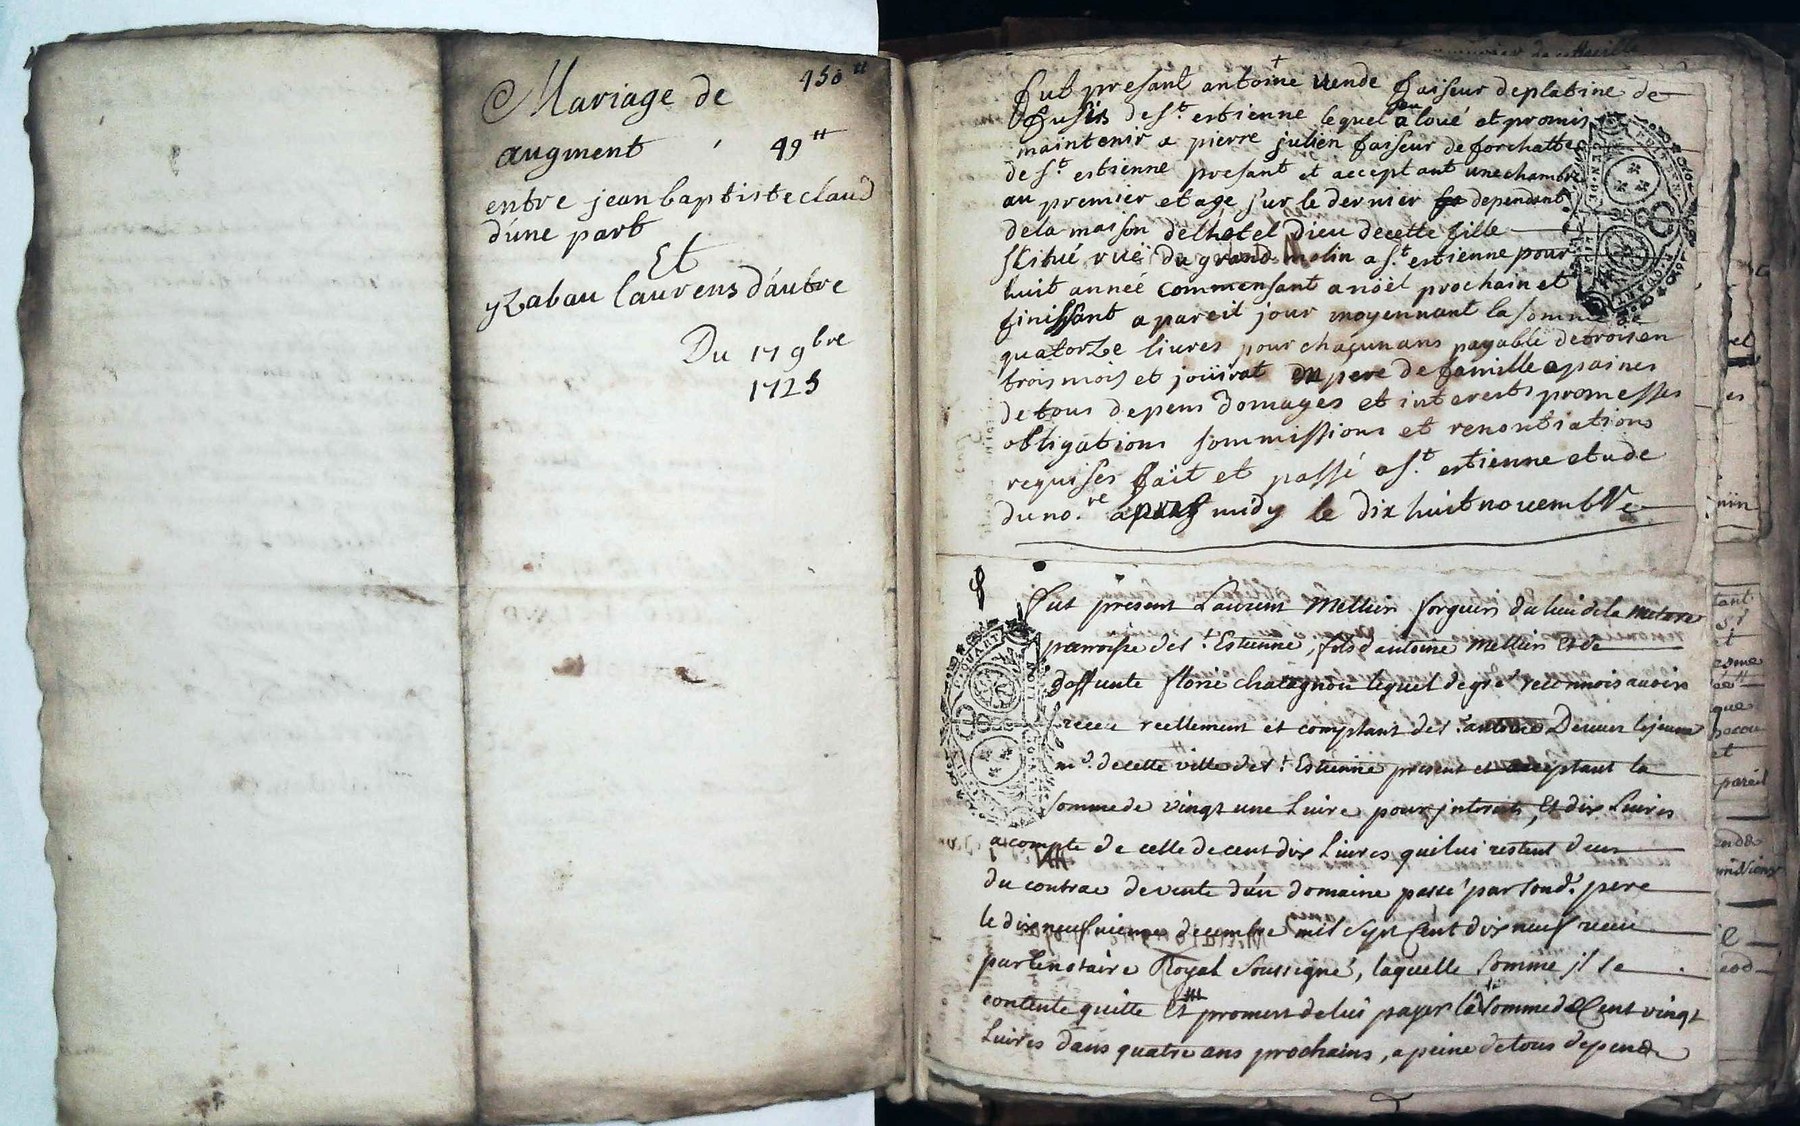 Mariage de 450tt
augment 49tt
entre jean baptiste claud
d'une part
Et
yzabau laurens d'autre
Du 17 9bre
1725
fut presant antoine vende faiseur de platine de
fusis de st. estienne lequel a loué et promis
maintenir a pierre julien faiseur de forchatte
de st. estienne presant et acceptant une chambre
au premier etage sur le dernier dependent
de la maison de l'hotel Dieu de cette fille
scitué rüe du grand molin a st. estienne pour
huit anneé commensant a noël prochain et
finissant a pareil jour moyennant la somme
quatorze livres pour chacun ans payable de trois en
trois mois et joüirat en pere de famille a paines
de tous depens domages et interests promesses
obligations sommissions et renontiations
requises fait et passé a st. estienne etude
du no.re apres midy le dix huit novembre
fut present Laurent Mellier forgeur du lieu de la
parroisse de st. Estienne, fils d'antoine Mellier et de
deffunte florie chatagnon lequel de gré reconnois avoir
receu reellement et comptant de sr. antoine le jeune
md. de cette ville de st. Estienne present et acceptant la
somme de vingt une livre pour interests, et dix livres
a compte de celle de cent dix livres qui lui restent deus
du contrac de vente d'un domaine passé par sond. pere
le dix neufvieme decembre mil sept cent dix neuf receu
par le notaire Royal soussigné, laquelle somme il se
contente quitte et promest de lui payer la somme de Cent vingt
livres dans quatre ans prochains, a peine de tous depends